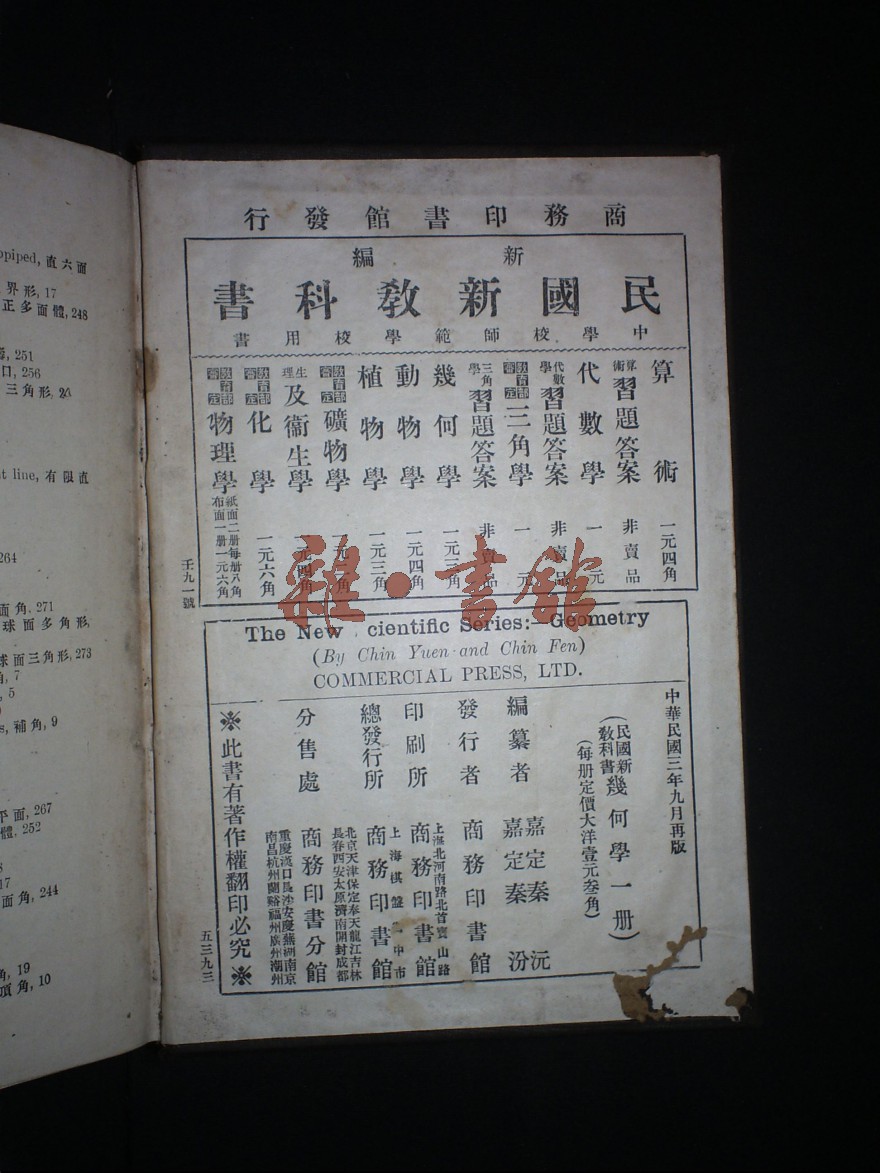 opiped, 直六面
界形, 17
正多面體, 248
251
口, 256
三角形, 2
t line, 有限直
264
面角. 271
球面多角形,
球面三角形, 273
, 7
, 5
s, 補角, 9
平面, 267
體, 252
17
面角, 244
角, 19
頂角, 10
商務印書館發行
新編
民國新教科書
中學校師範學校用書
算術 一元四角
算術習題答案 非賣品
代數學 一元
代數學習題答案 非賣品
教育部審定 三角學 一元
三角學習題答案 非賣品
幾何學 一元三角
動物學 一元四角
植物學 一元三角
教育部審定 礦物學 元 角
生理及衞生學 一元四角
教育部審定 化學 一元六角
教育部審定 物理學 紙面二册每册八角 布面一册一元六角
壬九一號
雜·書館
The New cientific Series:— Geometry
(By Chin Yuen and Chin Fen)
COMMERCIAL PRESS, LTD.
中華民國三年九月再版
(民國新教科書幾何學一册)
(每册定價大洋壹元叁角)
編纂者 嘉定秦沅 嘉定秦汾
發行者 商務印書館
印刷所 上海北河南路北首寶山路 商務印書館
總發行所 上海棋盤 中市 商務印書館
分售處 北京天津保定奉天龍江吉林長春西安太原濟南開封成都 重慶漢口長沙安慶蕪湖南京南昌杭州蘭谿福州廣州潮州 商務印書分館
※此書有著作權翻印必究※
五三九三